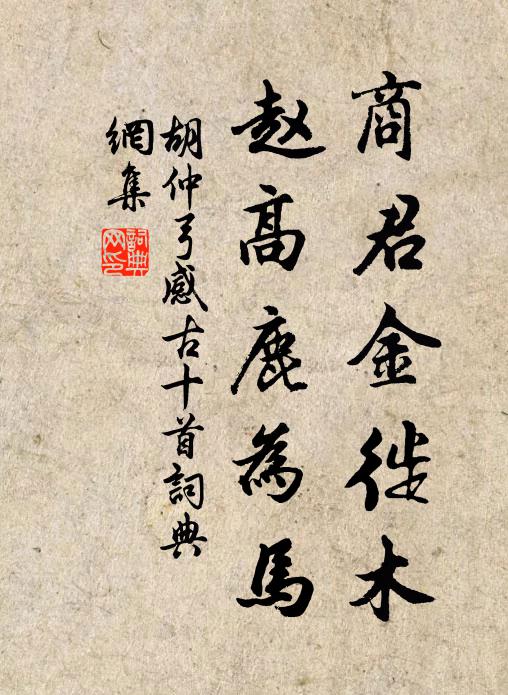 商君金徙木
赵高鹿為馬
胡仲弓感古十首詞典
網集
詞典
网印